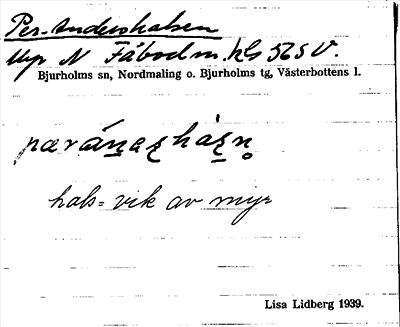 Per-Andershalsen
Myr N Fäbodm. kls 565 V.
Bjurholms sn, Nordmaling o. Bjurholms tg, Västerbottens l.
hals= vik av myr
Lisa Lidberg 1939.